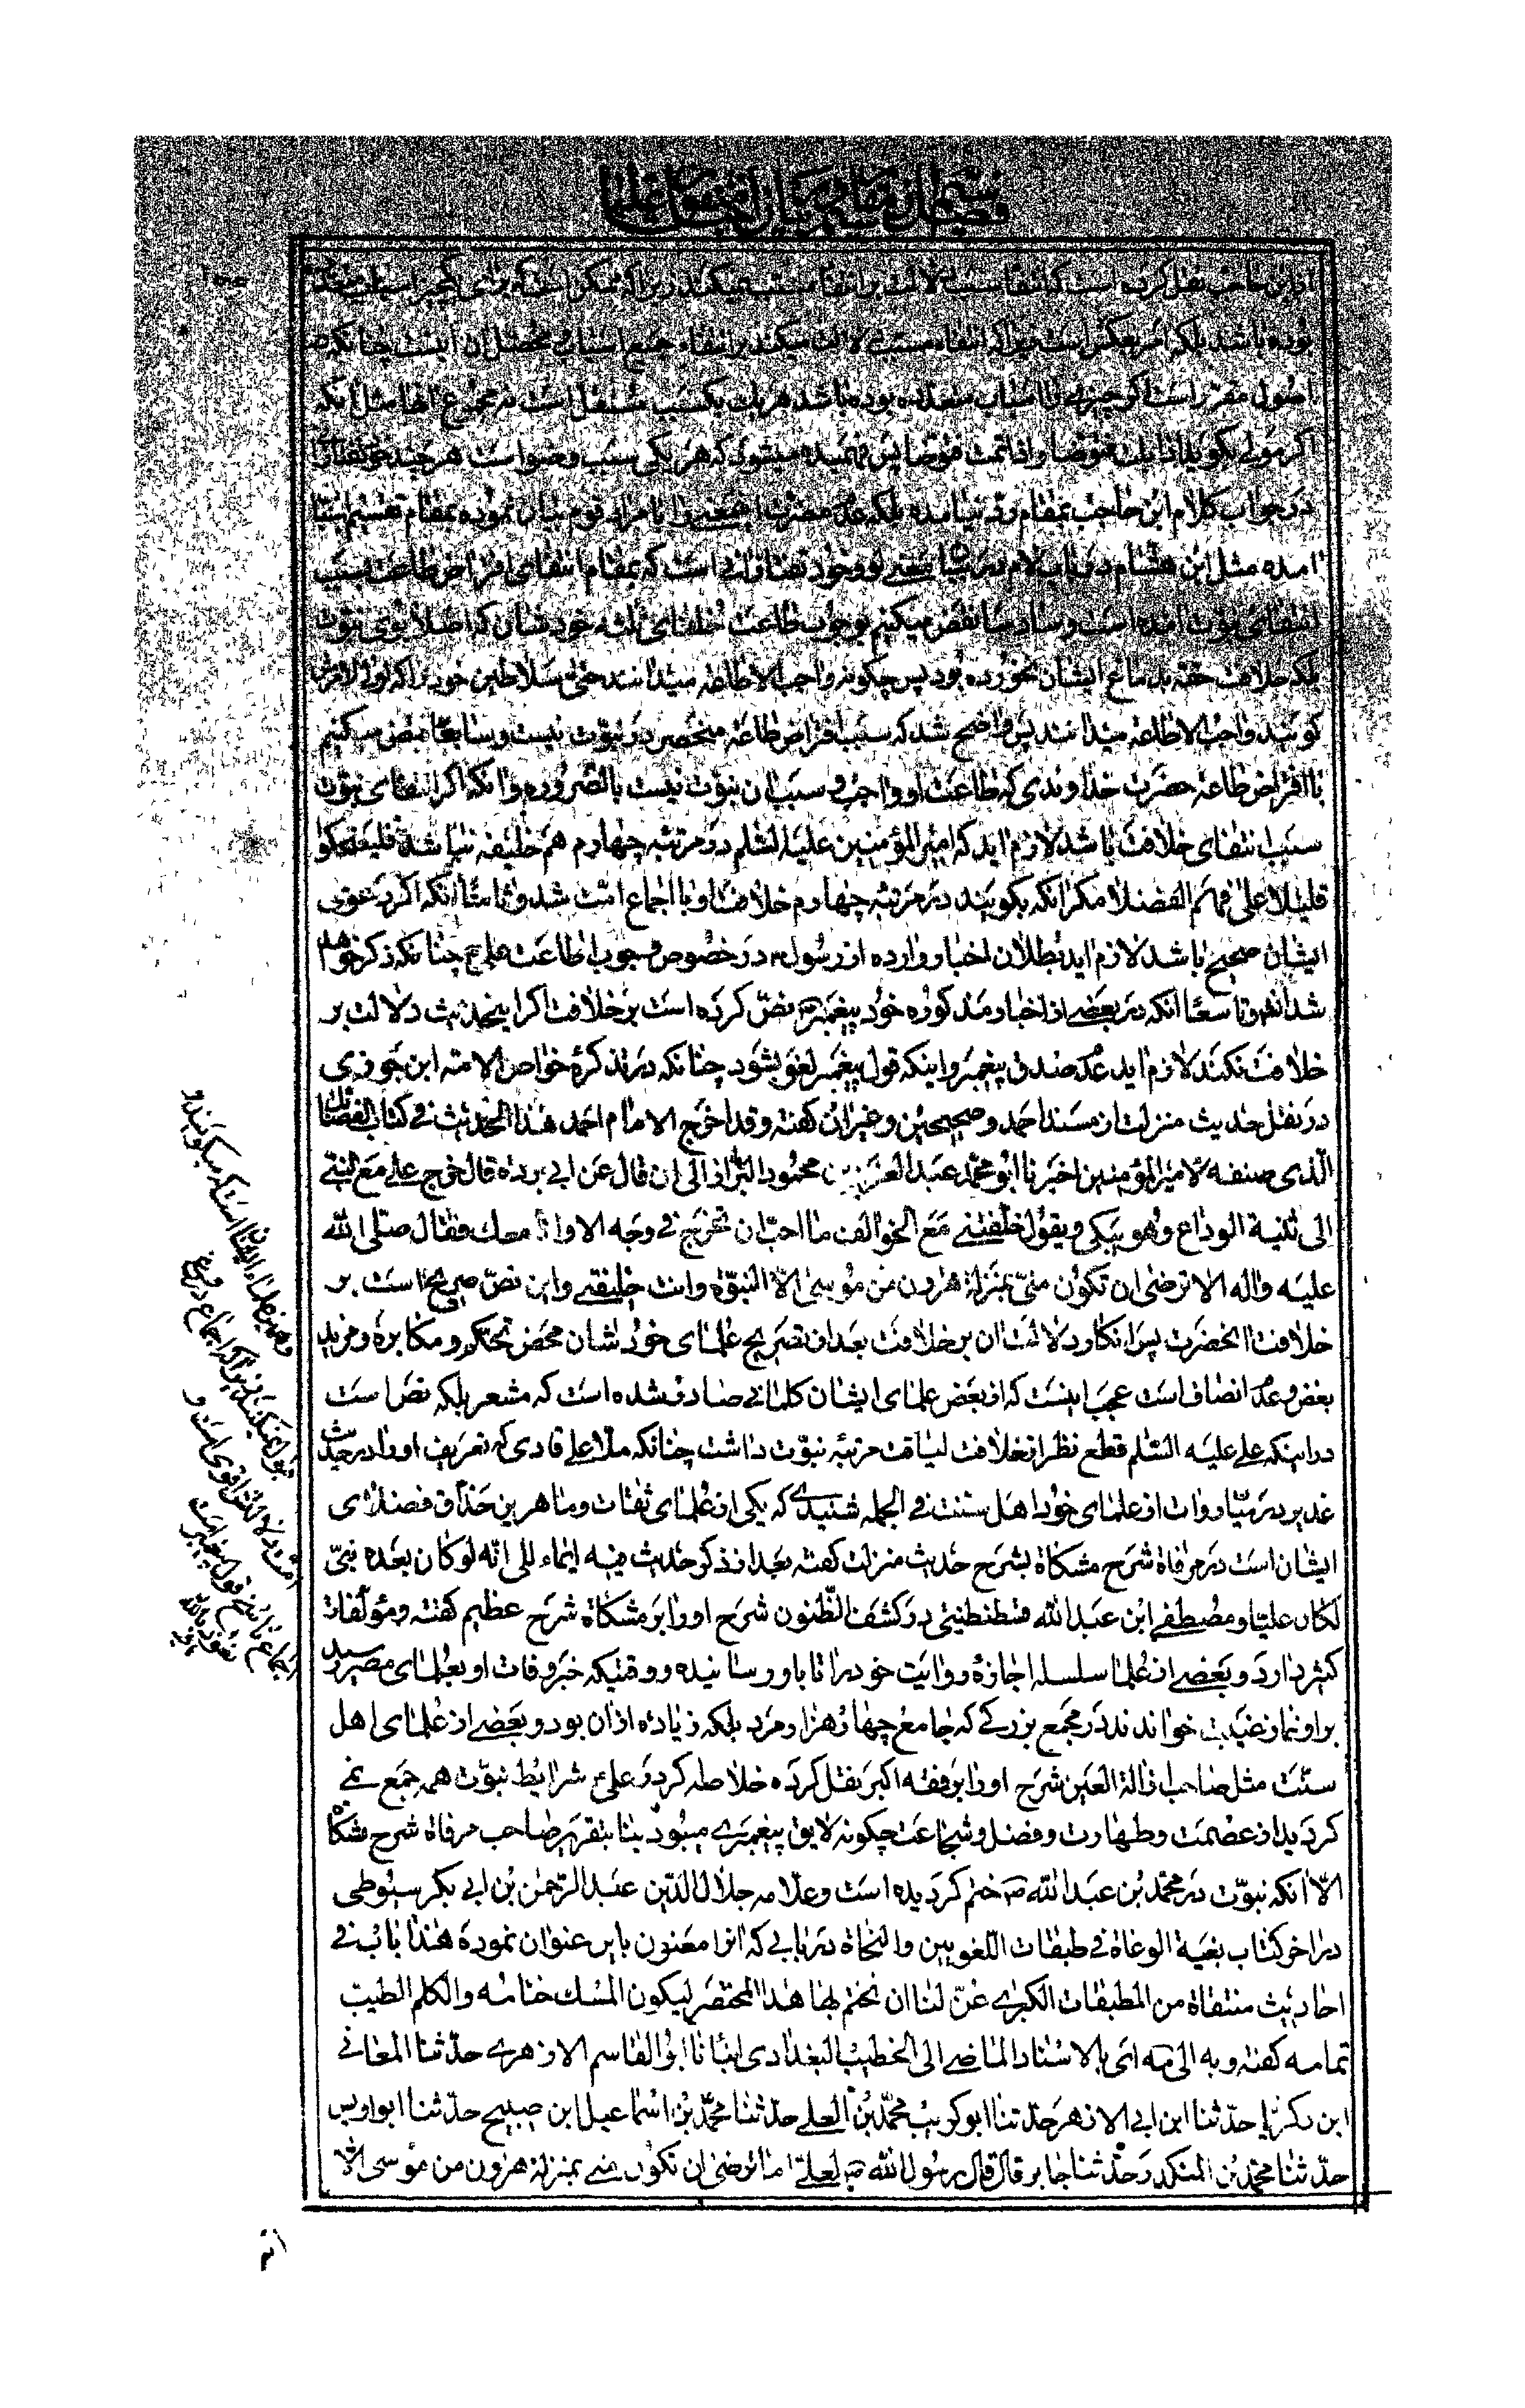 از ابن حاجب نقل کرده است که انتفاء سبب دلالت بر انتفاء مسبب نمیکند زیرا که ممکن است که برای یکچیز اسباب متعدده
بوده باشد بلکه امر بعکس است زیرا که انتفاء مسبب دلالت میکند بر انتفاء جمیع اسباب و محصل ان اینست چنانکه در
اصول مقرر است اگر چیزی را اسباب متعدده بوده باشد هر یک یکسبب مستقل است نه مجموع انها مثل انکه
اکر مولی بکوید اذا بلت فتوضا و اذا نمت فتوضا پس فهمیده میشود که هر یکی سبب وضو است هر چند
در جواب کلام ابن حاجب بمقام رد بیامده بلکه
امده مثل ابن هشام در باب لام در معنی لو و خود تفتازانی است که بمقام انتفای افتراض طاعت بسبب
انتفای نبوت امده است و سادسا نقض میکنیم بوجوب طاعت خلفای ثلثه خودشان که اصلا بوی نبوت
بلکه خلافت حقه بدماغ ایشان نخورده بود پس چکونه واجب الاطاعه میدانند حتی سلاطین خود را که اولی الامرش
کویند واجب الاطاعه میدانند پس واضح شد که سبب افتراض طاعة منحصر در نبوت نیست و سابعا نقض میکنیم
با افتراض طاعة حضرت خداوندی که طاعت او واجب و سبب ان نبوت نیست بالضروره و انکه اکر انتفای نبوت
سبب انتفای خلافت باشد لازم اید که امیر المؤمنین علیه السلم در مرتبه چهارم هم خلیفه نباشد فلیضحکوا
قلیلا علی فهائم الفضلا مکر انکه بکویند در مرتبه چهارم خلافت او با اجماع امت شد و ثامنا انکه اکر دعوی
ایشان صحیح باشد لازم اید بطلان اخبار وارده از رسول ص در خصوص وجوب اطاعت علی ع چنانکه ذکر خواهد
شد انفا و تاسعا انکه در بعضی از اخبار مذکوره خود پیغمبر ص نص کرده است بر خلافت اکر اینحدیث دلالت بر
خلافت نکند لازم اید عدم صدق پیغمبر و اینکه قول پیغمبر لغو بشود چنانکه در تذکرهٔ خواص الامه ابن جوزی
در نقل حدیث منزلت از مسند احمد و صحیحین و غیر ان کفته و قد اخرج الامام احمد هذا الحدیث فی کتاب الفضائل
الذی صنفه لامیر المؤمنین اخبرنا ابو محمد عبد العزیز بن محمود البزاز الی ان قال عن ابی برده قال خرج علی مع النبی
الی ثنیة الوداع و هو یبکی و یقول خلفتنی مع الخوالف ما احب ان تخرج فی وجه الا و انا معک فقال صلی الله
علیه و اله الا ترضی ان تکون منی بمنزلة هرون من موسی الا النبوة و انت خلیفتی و این نص صریح است بر
خلافت انحضرت پس انکار دلالت ان بر خلافت بعد از تصریح علمای خودشان محض تحکم و مکابره و مزید
بغض و عدم انصاف است عجب اینست که از بعض علمای ایشان کلماتی صادر شده است که مشعر بلکه نص است
در اینکه علی علیه السلم قطع نظر از خلافت لیاقت مرتبه نبوت داشت چنانکه ملا علی قاری که تعریف او را در حدیث
غدیر در میان روات از علمای خود اهل سنت فی الجمله شنیدی که یکی از علمای ثقات و ماهرین حذاق فضلای
ایشان است در مرقاة شرح مشکاة بشرح حدیث منزلت کفته بعد از ذکر حدیث فیه ایماء الی انه لو کان بعده نبی
لکان علیا و مصطفی ابن عبد الله قسطنطینی در کشف الظنون شرح او را بر مشکاة شرح عظیم کفته و مؤلفات
کثیر دارد و بعضی از علما سلسله اجازهٔ روایت خود را تا باو رسانیده و وقتیکه خبر وفات او بعلمای مصر رسید
بر او نماز غیبت خواندند در مجمع بزرکی که جامع چهار هزار مرد بلکه زیاده از ان بود و بعضی از علمای اهل
سنت مثل صاحب ازالة العین شرح او را بر فقه اکبر نقل کرده خلاصه کر در علی ع شرایط نبوت همه جمع نمی
کردید از عصمت و طهارت و فضل و شجاعت چکونه لایق پیغمبری میبود بنا بتقریر صاحب مرقاة شرح مشکاة
الا انکه نبوت در محمد بن عبد الله ص ختم کردیده است و علامه جلال الدین عبد الرحمن بن ابی بکر سیوطی
در اخر کتاب بغیة الوعاة فی طبقات اللغویین و النحاة در بابی که انرا معنون باین عنوان نموده هذا باب فی
احادیث منتقاة من الطبقات الکبری عن لنا ان نختم بها هذا المختصر لیکون المسک ختامه و الکلم الطیب
تمامه کفته و به الی مه ای بالاسناد الماضی الی الخطیب البغدادی انبانا ابو القاسم الازهری حدثنا المعافی
ابن زکریا حدثنا ابن ابی الازهر حدثنا ابو کریب محمد بن العلی حدثنا محمد بن اسماعیل ابن صبیح حدثنا ابو اویس
حدثنا محمد بن المنکدر حدثنا جابر قال قال رسول الله ص لعلی اما ترضی ان تکون منی بمنزلة هرون من موسی الا
انه